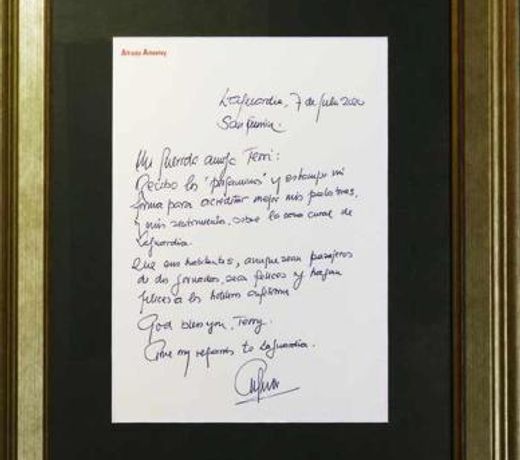 Alfonso Ameztoy
Laguardia, 7 de Julio 2020
San Fermín.
Mi querido amigo Terri:
Recibo los "pergaminos" y estampo mi
firma para acreditar mejor mis palabras,
y mis sentimientos, sobre la casa cural de
Laguardia.
Que sus habitantes, aunque sean pasajeros
de dos jornadas, sean felices y hagan
felices a los
God bless you, Terry.
Give my regards to Laguardia.